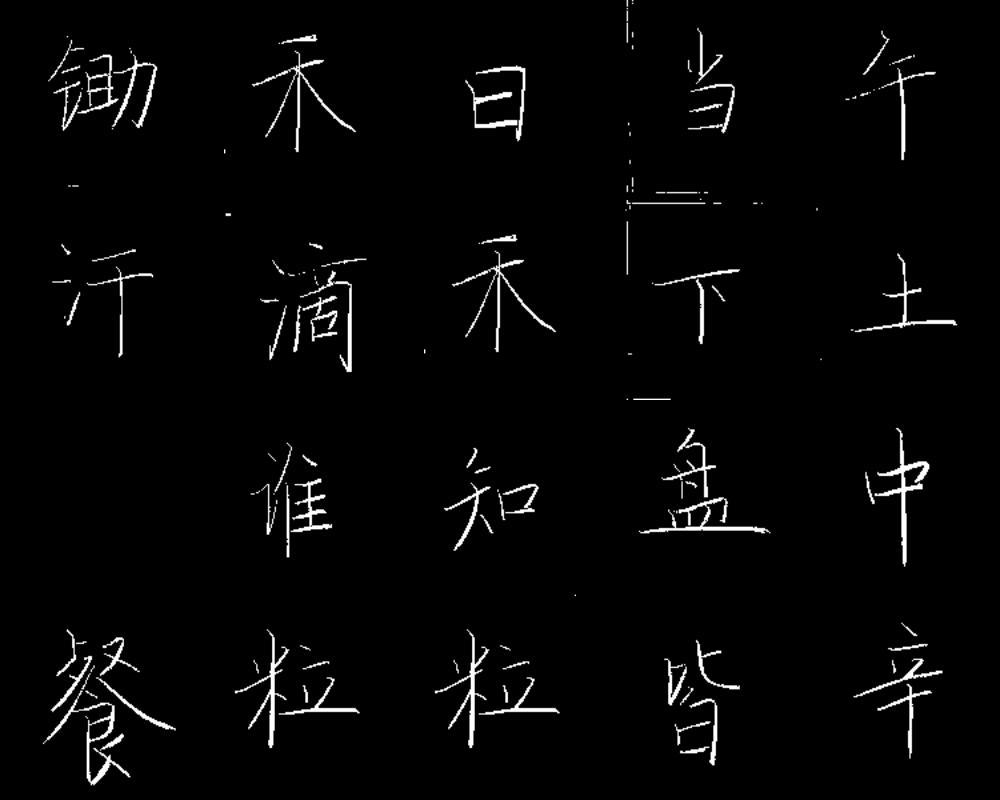 锄禾日当午
汗滴禾下土
谁知盘中
餐粒粒皆辛